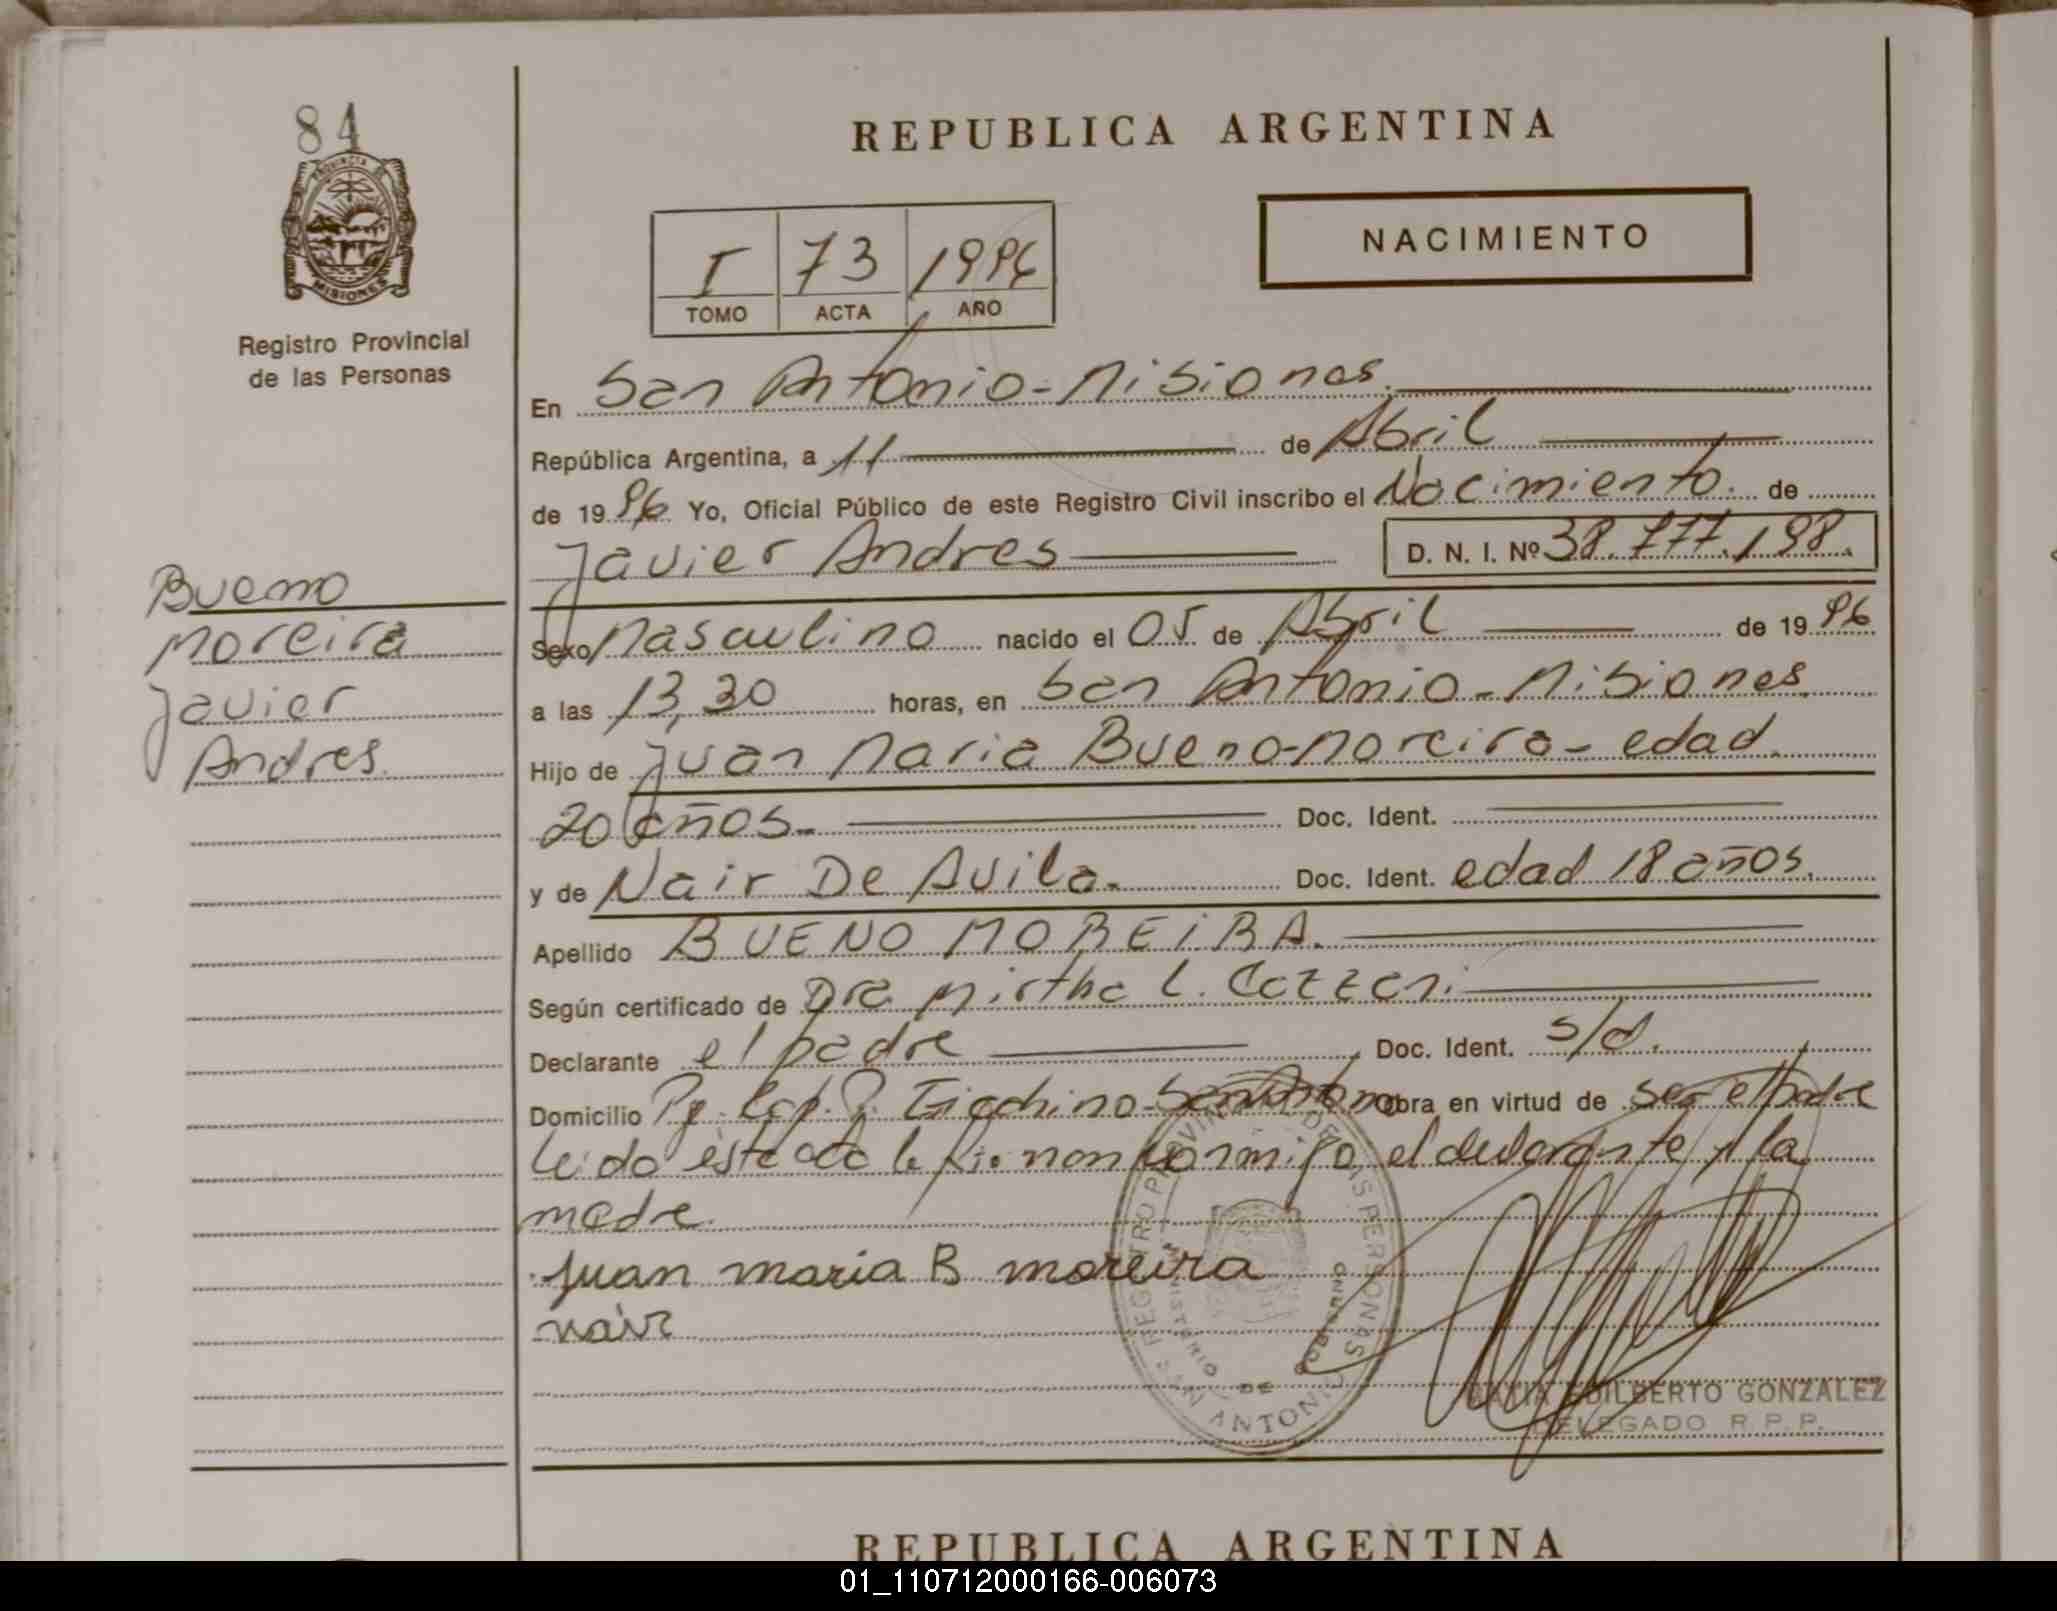 84
PROVINCIA DE
MISIONES
Registro Provincial
de las Personas
REPUBLICA ARGENTINA
NACIMIENTO
I 73 1996
TOMO ACTA AÑO
En San Antonio - Misiones.
República Argentina, a 11 de Abril
de 1996 Yo, Oficial Público de este Registro Civil inscribo el Nacimiento. de
Javier Andres D. N. I. Nº 38.777.198.
Bueno
Moreira
Javier
Andres.
Sexo Masculino nacido el 05 de Abril de 1996
a las 13,30 horas, en San Antonio - Misiones.
Hijo de Juan Maria Bueno-Moreira - edad.
20 años. Doc. Ident.
y de Nair De Avila. Doc. Ident. edad 18 años.
Apellido BUENO MOREIRA.
Según certificado de Dra. Mirtha L.
Declarante el padre Doc. Ident. s/d.
Domicilio San Antonio obra en virtud de ser el Padre
Leido esta acta la firman conmigo el declarante y la
madre.
Juan maria B moreira
nair
REGISTRO PROVINCIAL DE LAS PERSONAS
MINISTERIO DE GOBIERNO
SAN ANTONIO
EDILBERTO GONZALEZ
DELEGADO R. P. P.
REPUBLICA ARGENTINA
01_110712000166-006073